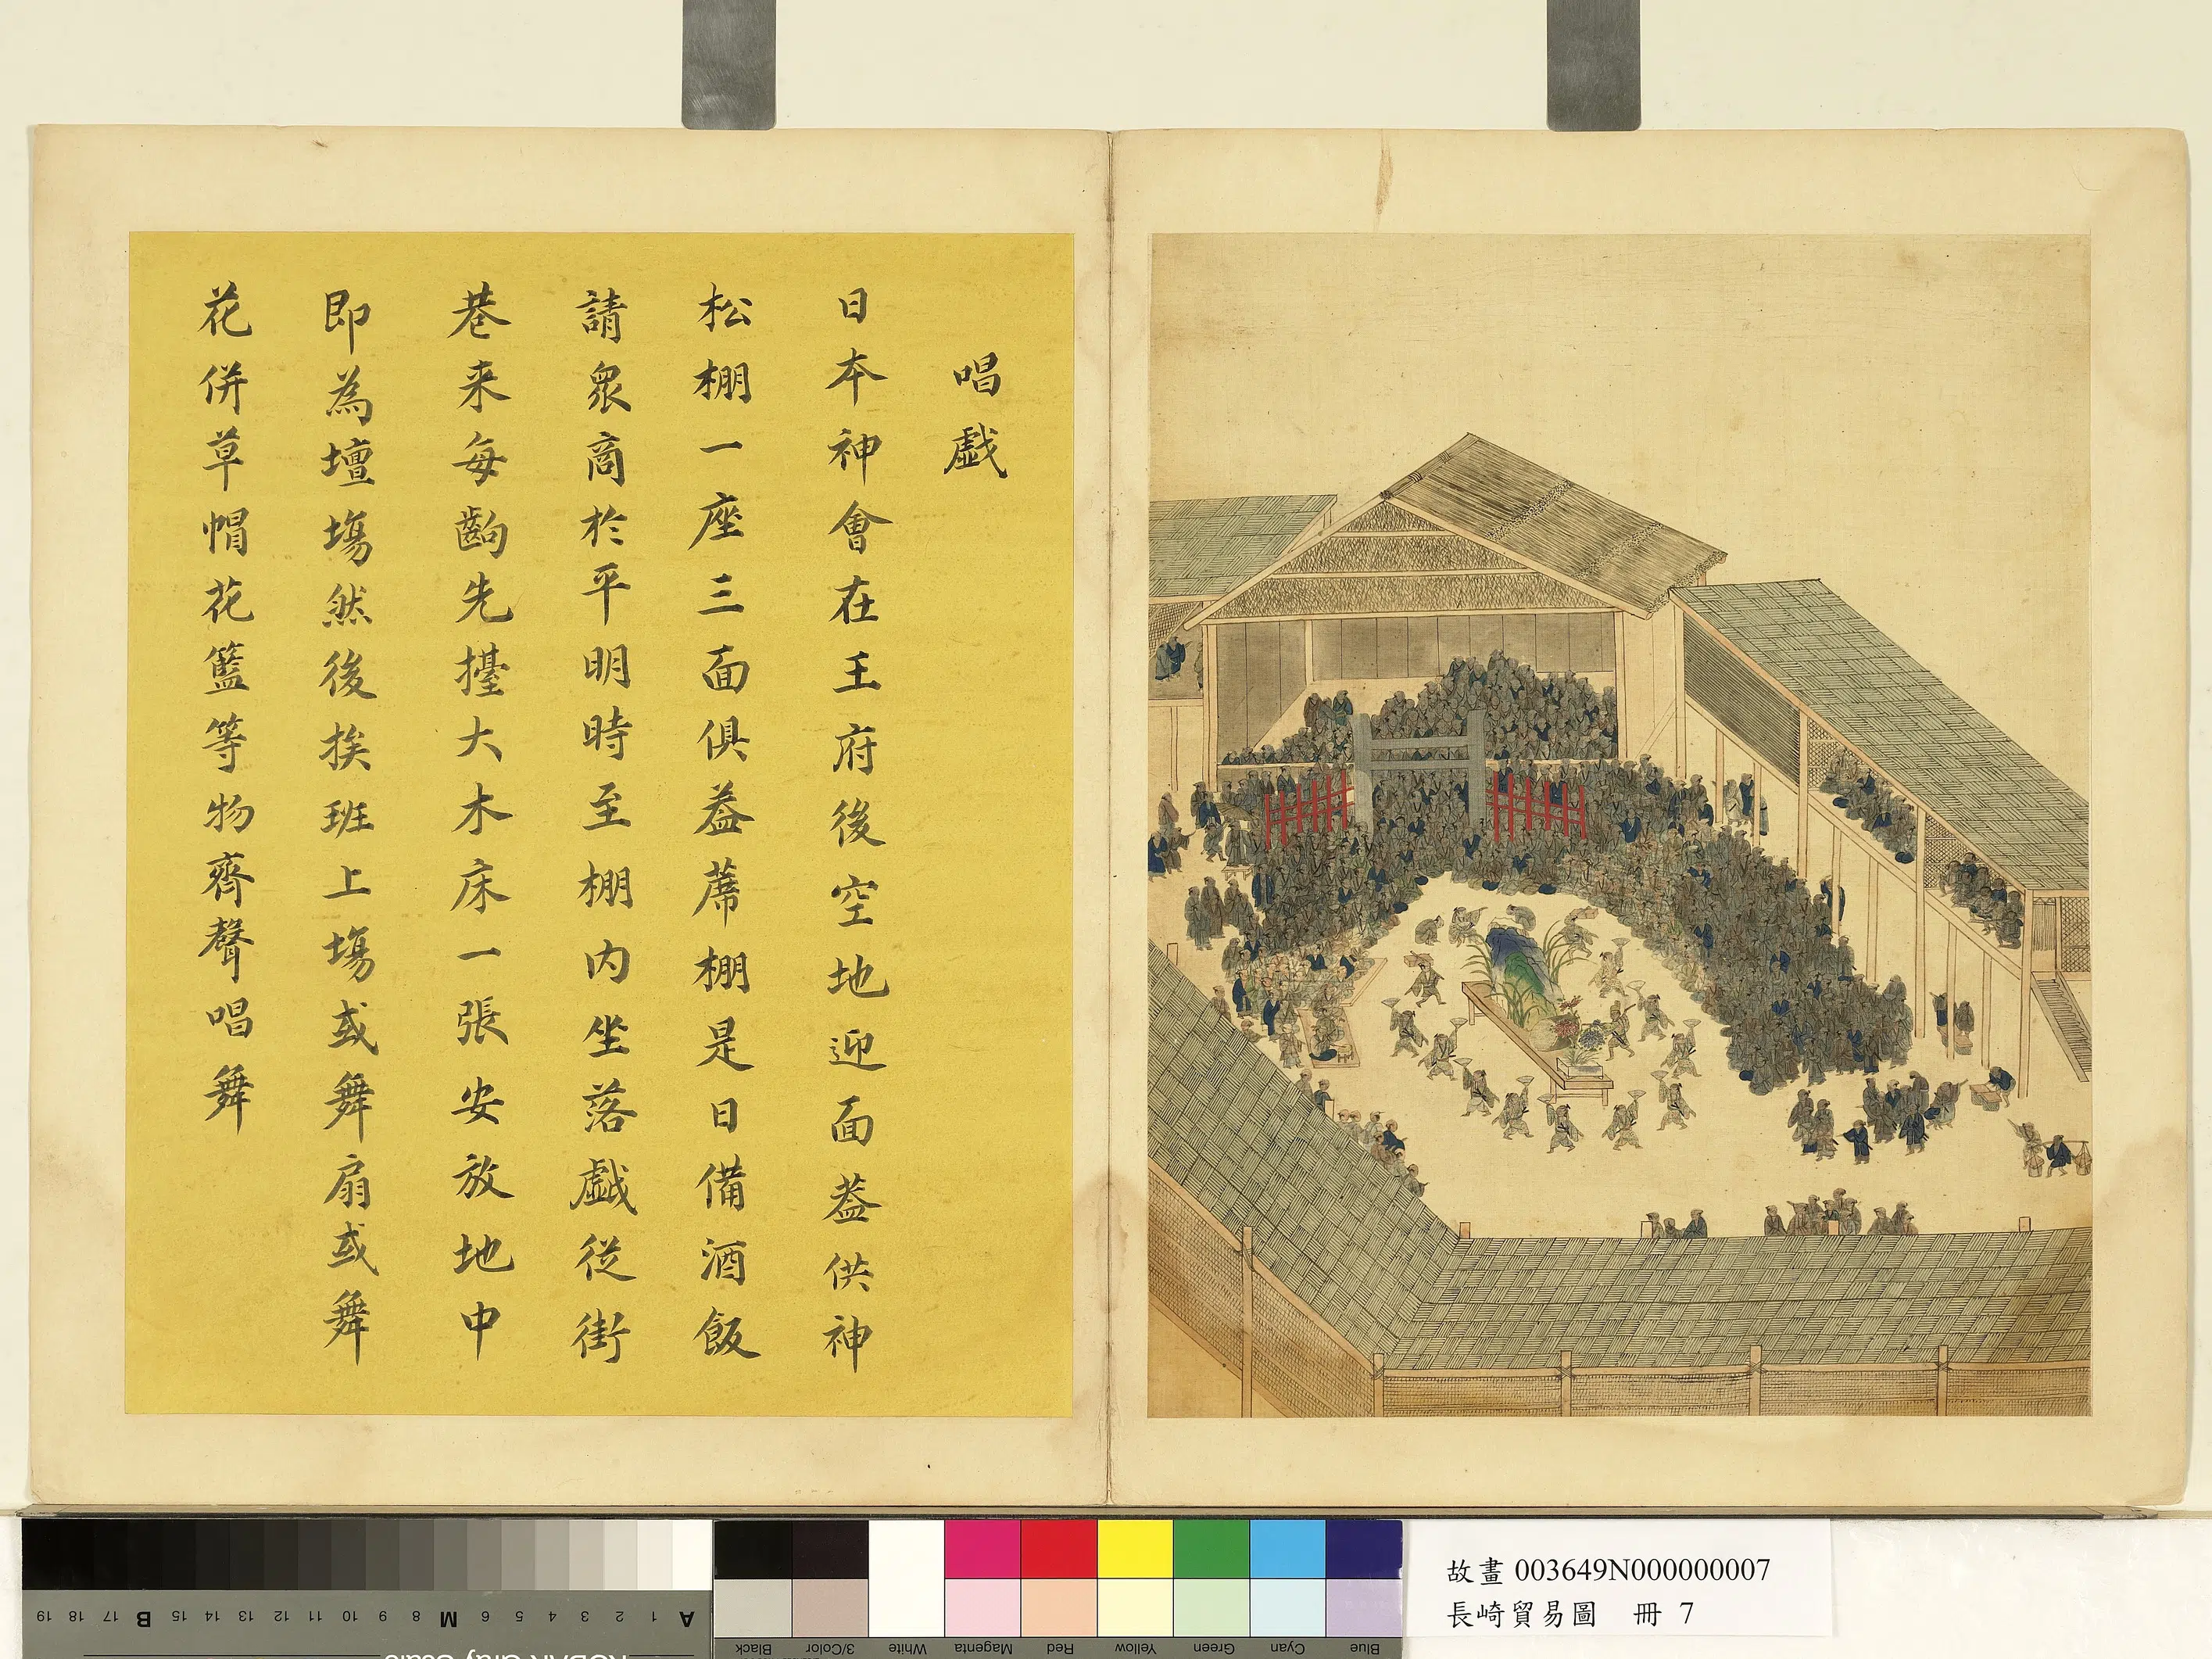 唱戯
日本神會在王府後空地迎面葢供神
松棚一座三面俱葢蓆棚是日備酒飯
請衆商於平明時至棚内坐落戯從街
巷来每齣先擡大木床一張安放地中
即為壇塲然後挨班上塲或舞扇或舞
花併草帽花籃等物齊聲唱舞
故畫 003649N000000007
長崎貿易圖 冊 7
A 1 2 3 4 5 6 M 8 9 10 11 12 13 14 15 B 17 18 19
Blue Cyan Green Yellow Red Magenta White 3/Color Black